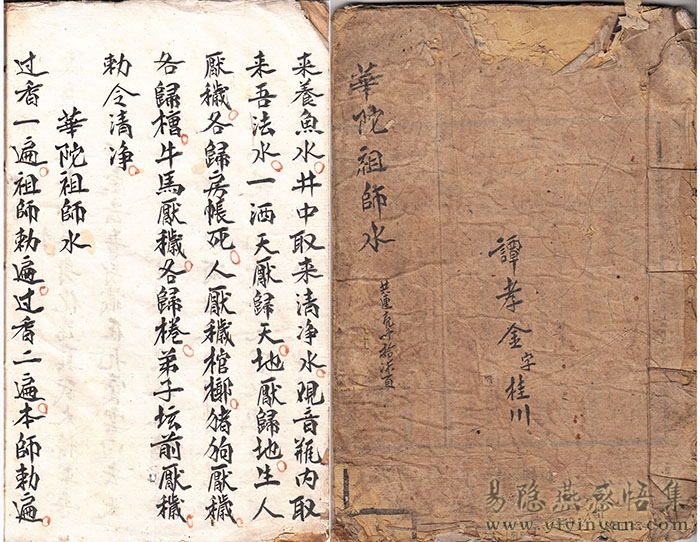 来養魚水井中取来清净水观音瓶内取
来吾法水一洒天厭歸天地厭歸地生人
厭穢各歸房帳死人厭穢棺槨猪狗厭穢
各歸樻牛馬厭穢各歸棬弟子坛前厭穢
勅令清净
華陀祖師水
过香一遍祖師勅遍过香二遍本師勅遍
華陀祖師水
譚孝金字桂川
易隐燕感悟集
www.yiyinyan.com